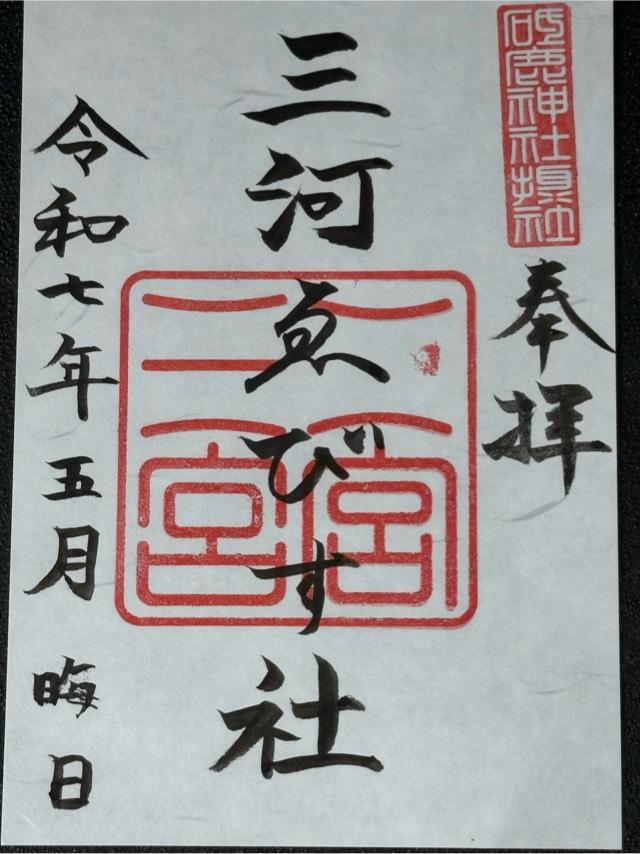 砥鹿神社摂社
奉拝
三河ゑびす社
二宮
一宮
令和七年五月晦日